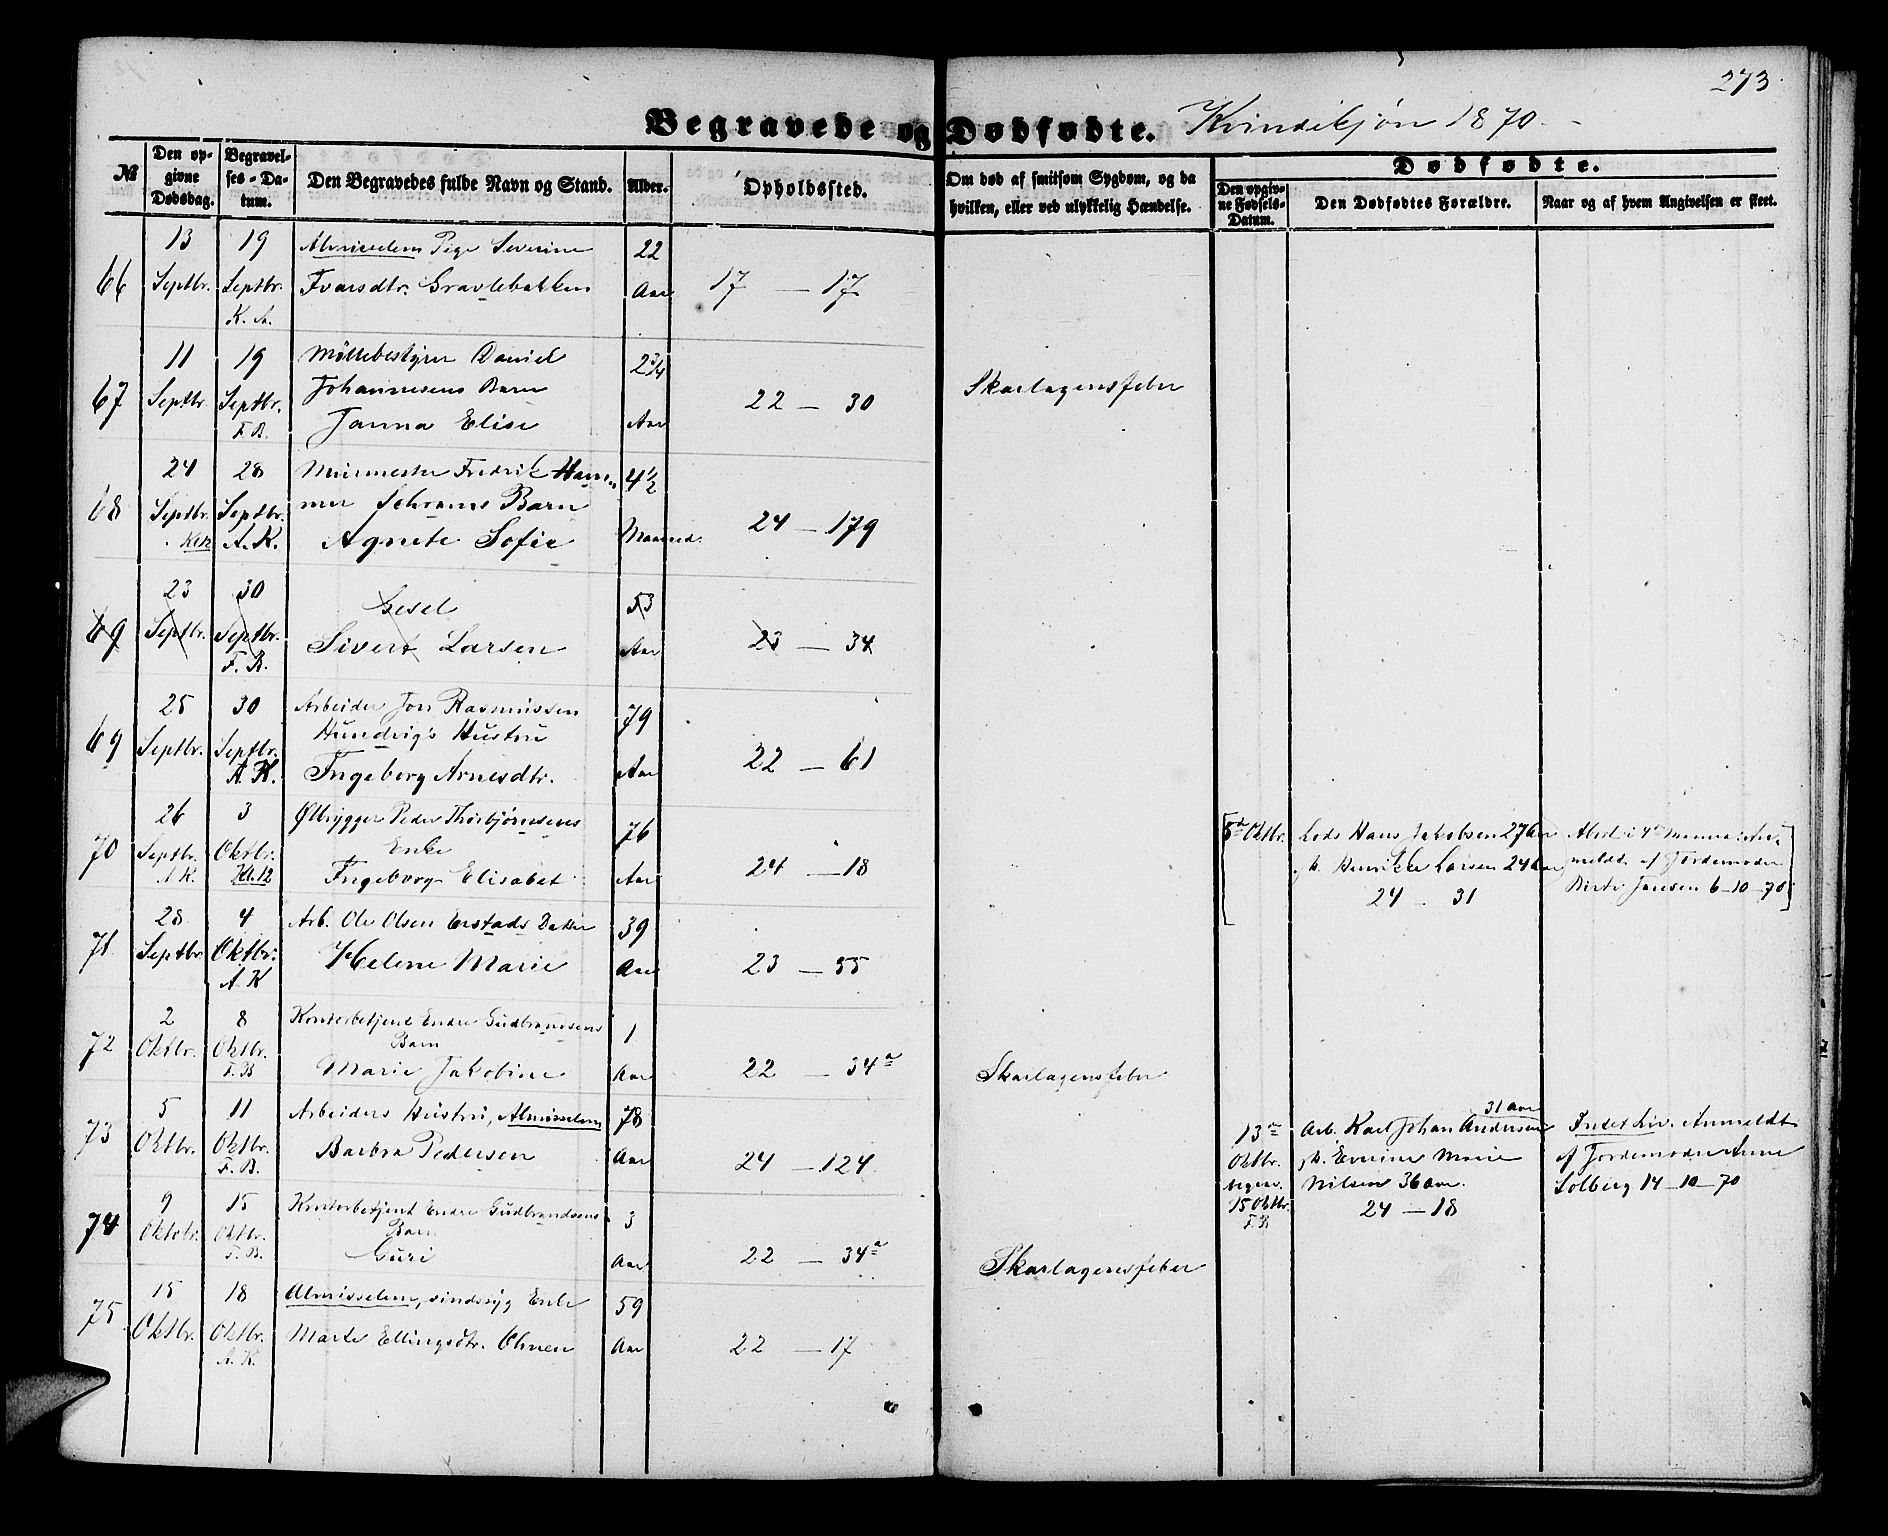 273.
Begravede og Dødfødte. Kvindekjøn 1870.
№
Den opgivne Dødsdag.
Begravelses-Datum.
Den Begravedes fulde Navn og Stand.
Alder.
Opholdssted.
Om død af smitsom Sygdom, og da hvilken, eller ved ulykkelig Hændelse.
Dødfødte.
Den opgivne Fødsels-Datum.
Den Dødfødtes Forældre.
Naar og af hvem Angivelsen er skeet.
13 19 Almisselem Pige Severine 22
66 Septbr. Septbr. Ivarsdtr. Gravlebakken Aar 17 — 17
K. A.
11 19 Møllebestyrer Daniel 2 3/4
67 Septbr. Septbr. Johannesens Barn 22 — 30 Skarlagensfeber
F. B. Janna Elise Aar
24 28 Muurmester Fredrik Ham- 4 1/2
68 Septbr. Septbr. mer Schrams Barn 24 — 179
Kl 12 A. K. Agnete Sofie Maaned.
23 30 Gesel 53
69 Septbr. Septbr. Sivert Larsen Aar 23 — 34
F. B.
25 30 Arbeider Jon Rasmussen 79
69 Septbr. Septbr. Hundvig's Hustru 22 — 61
A. K. Ingeborg Arnesdtr. Aar
26 3 Ølbrygger Peder Thorbjørnsens 76
70 Septbr. Oktbr. Enke 24 — 18
A. K. Kl. 12 Ingeborg Elisabet Aar
5d Oktbr. Lods Hans Jakobsen 27 Aar
h. Henrikke Larsen 24 Aar
24 — 31
Abort i 4de Maaned. An-
meldt af Jordemoder
Birte Jansen 6-10-70
28 4 Arb. Ole Olsen Erstads Datter 39
71 Septbr Oktbr. Helene Marie Aar 23 — 55
A. K
2 8 Kontorbetjent Endre Gudbrandsens 1
72 Oktbr. Oktbr. Barn
F. B Marie Jakobine Aar 22 — 34a Skarlagensfeber
5 11 Arbeiders Hustru, Almisselem 78
73 Oktbr. Oktbr. Barbra Pedersen Aar 24 — 124
F. B.
31 Aar
13de Arb. Karl Johan Andersen
Oktbr. h. Everine Marie
begrav. Nilsen 36 Aar.
15 Oktbr. 24 — 18
F. B
Intet Liv. Anmeldt
af Jordemoder Anne
Solberg 14-10-70
9 15 Kontorbetjent Endre Gudbrandsens 3
74 Oktobr. Oktbr. Barn
F. B. Guri Aar 22 — 34a Skarlagensfeber
15 18 Almisselem, sindssyg Enke 59
75 Oktbr. Oktbr. Marte Ellingsdtr. Ohnen Aar 22 — 17
A. K.